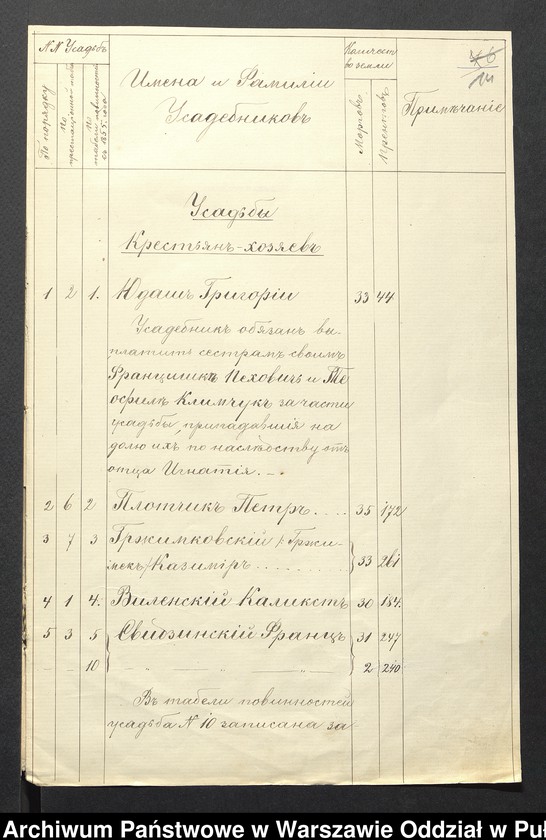 №№ Усадьбъ
По порядку
По престаціонной таб.
По табели повинностей съ 1855 года
Имена и Фамиліи
Усадебниковъ
Количест
во земли
Морговъ
Прентовъ
Примѣчаніе
14
Усадьбы
Крестьянъ-хозяевъ
1 2 1. Юдашъ Григорій 33 44
Усадебникъ обязанъ вы-
платить сестрамъ своимъ
Францишкѣ Пеховичъ и Те
офилѣ Климчукъ за части
усадьбы, припадавшія на
долю ихъ по наслѣдству отъ
отца Игнатія. —
2 6 2 Плотчикъ Петръ . . . . 35 172
3 7 3 Гржимковскій /: Гржи-
мекъ/ Казиміръ . . . . . . . . . 33 261
4 1 4. Виленскій Каликстъ 30 184.
5 3 5 Свидзинскій Францъ 31 247
10 2 240
Въ табели повинностей
усадьба № 10 записана за
Archiwum Państwowe w Warszawie Oddział w Puł